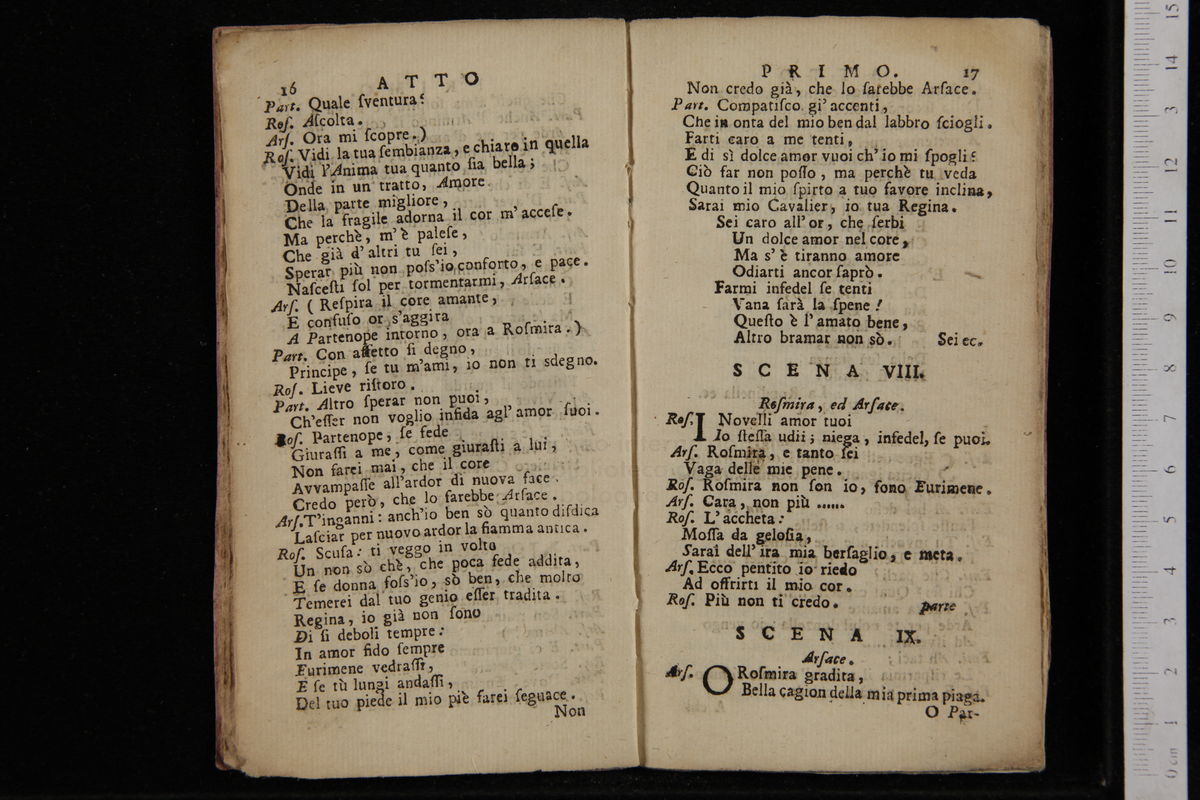 16 ATTO
Part. Quale ſventura?
Roſ. Aſcolta.
Arſ. Ora mi ſcopre.)
Roſ. Vidi la tua ſembianza, e chiaro in quella
Vidi l'Anima tua quanto ſia bella;
Onde in un tratto, Amore
Della parte migliore,
Che la fragile adorna il cor m'acceſe.
Ma perchè, m'è paleſe,
Che già d'altri tu ſei,
Sperar più non poſs'io conforto, e pace.
Naſceſti ſol per tormentarmi, Arſace.
Arſ. (Reſpira il core amante,
E confuſo or s'aggira
A Partenope intorno, ora a Roſmira.)
Part. Con affetto ſi degno,
Principe, ſe tu m'ami, io non ti sdegno.
Roſ. Lieve riſtoro.
Part. Altro ſperar non puoi,
Ch'eſſer non voglio infida agl'amor ſuoi.
Roſ. Partenope, ſe fede
Giuraſſi a me, come giuraſti a lui,
Non farei mai, che il core
Avvampaſſe all'ardor di nuova face.
Credo però, che lo farebbe Arſace.
Arſ. T'inganni: anch'io ben sò quanto diſdica
Laſciar per nuovo ardor la fiamma antica.
Roſ. Scuſa: ti veggo in volto
Un non sò chè, che poca fede addita,
E ſe donna foſs'io, sò ben, che molto
Temerei dal tuo genio eſſer tradita.
Regina, io già non ſono
Di ſi deboli tempre:
In amor fido ſempre
Eurimene vedraſſi,
E ſe tù lungi andaſſi,
Del tuo piede il mio piè farei ſeguace.
Non
PRIMO. 17
Non credo già, che lo farebbe Arſace.
Part. Compatiſco gl'accenti,
Che in onta del mio ben dal labbro ſciogli.
Farti caro a me tenti,
E di sì dolce amor vuoi ch'io mi ſpogli?
Ciò far non poſſo, ma perchè tu veda
Quanto il mio ſpirto a tuo favore inclina,
Sarai mio Cavalier, io tua Regina.
Sei caro all'or, che ſerbi
Un dolce amor nel core,
Ma s'è tiranno amore
Odiarti ancor ſaprò.
Farmi infedel ſe tenti
Vana ſarà la ſpene!
Queſto è l'amato bene,
Altro bramar non sò. Sei ec.
SCENA VIII.
Roſmira, ed Arſace.
Roſ. I Novelli amor tuoi
Io ſteſſa udii; niega, infedel, ſe puoi.
Arſ. Roſmira, e tanto ſei
Vaga delle mie pene.
Roſ. Roſmira non ſon io, ſono Eurimene.
Arſ. Cara, non più ......
Roſ. L'accheta:
Moſſa da geloſia,
Sarai dell'ira mia berſaglio, e meta.
Arſ. Ecco pentito io riedo
Ad offrirti il mio cor.
Roſ. Più non ti credo. parte
SCENA IX.
Arſace.
Arſ. O Roſmira gradita,
Bella cagion della mia prima piaga.
O Par-